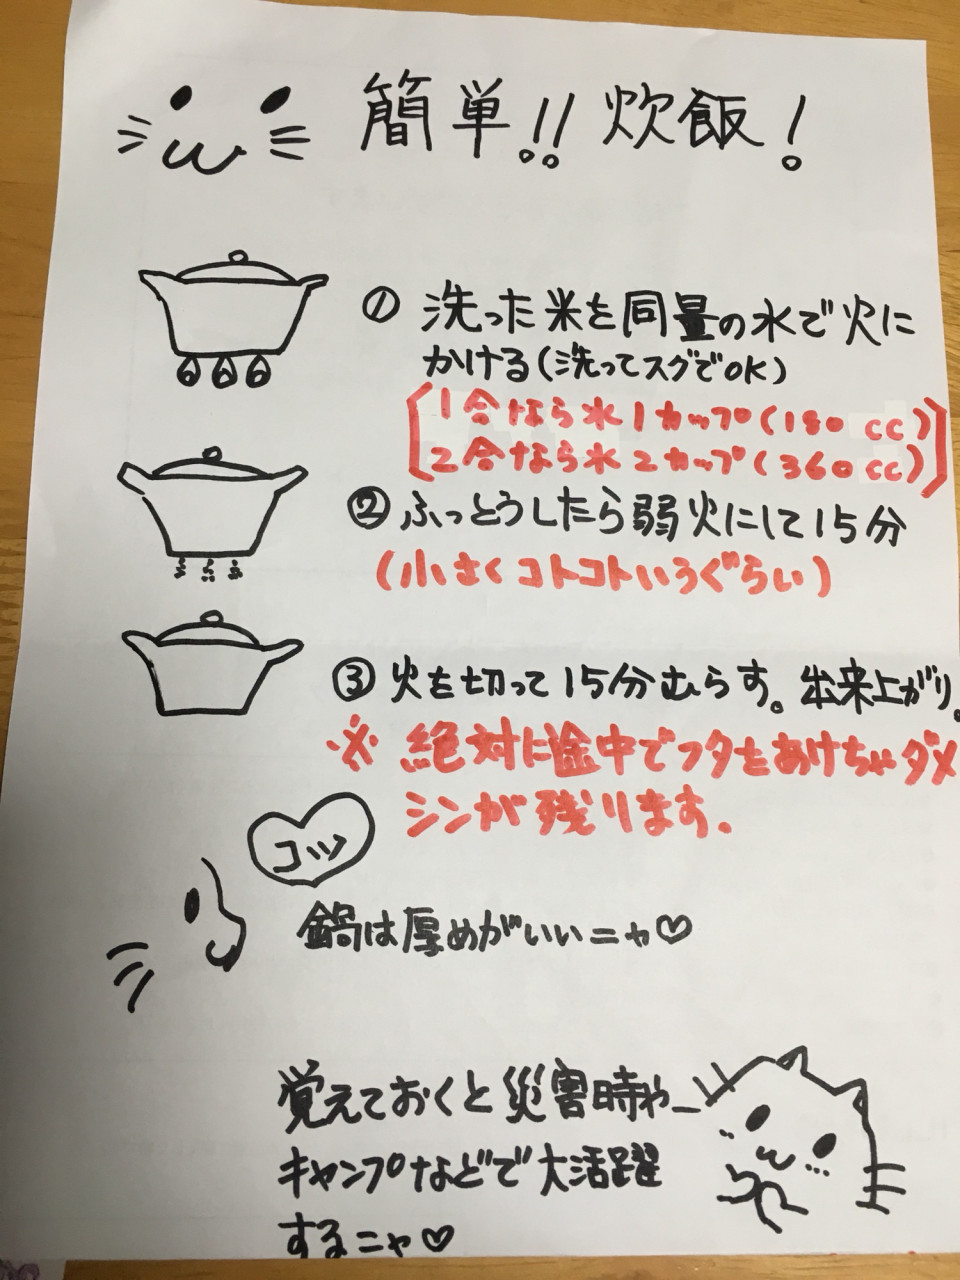 簡単!! 炊飯!
① 洗った米を同量の水で火に
かける(洗ってスグでOK)
[1合なら水1カップ(180 cc)
2合なら水2カップ(360cc)]
②ふっとうしたら弱火にして15分
(小さくコトコトいうぐらい)
③ 火を切って15分むらす。出来上がり。
※ 絶対に途中でフタをあけちゃダメ
シンが残ります.
コツ
鍋は厚めがいいニャ♡
覚えておくと災害時や
キャンプなどで大活躍
するニャ♡